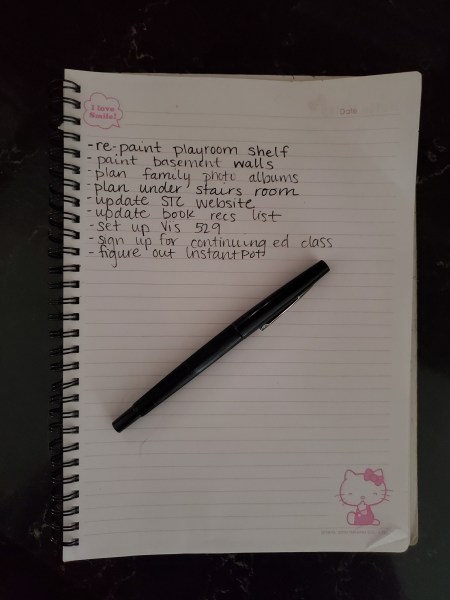 I love
Smile!
-re-paint playroom shelf
-paint basement walls
-plan family photo albums
-plan under stairs room
-update STC website
-update book recs list
-set up Vis 529
-sign up for continuing ed class
-figure out InstantPot!